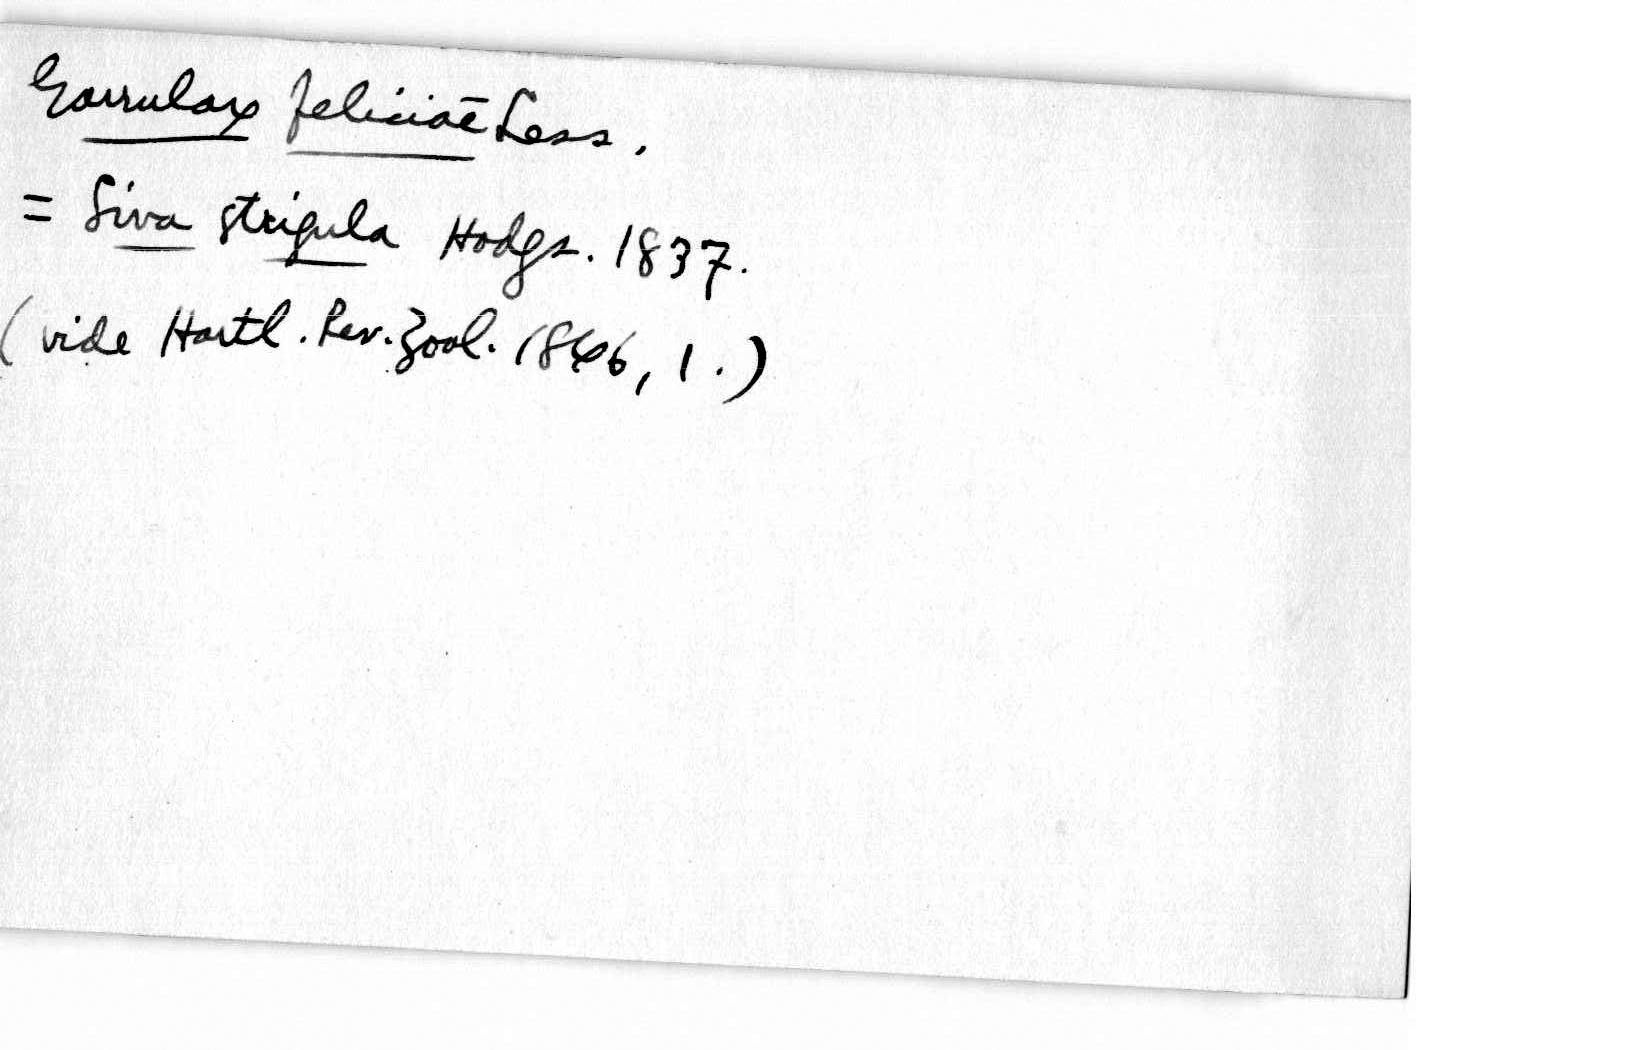 Garrulax feliciae Less.
= Siva strigula Hodgs. 1837.
(vide Hartl. Rev. Zool. 1846, 1.)